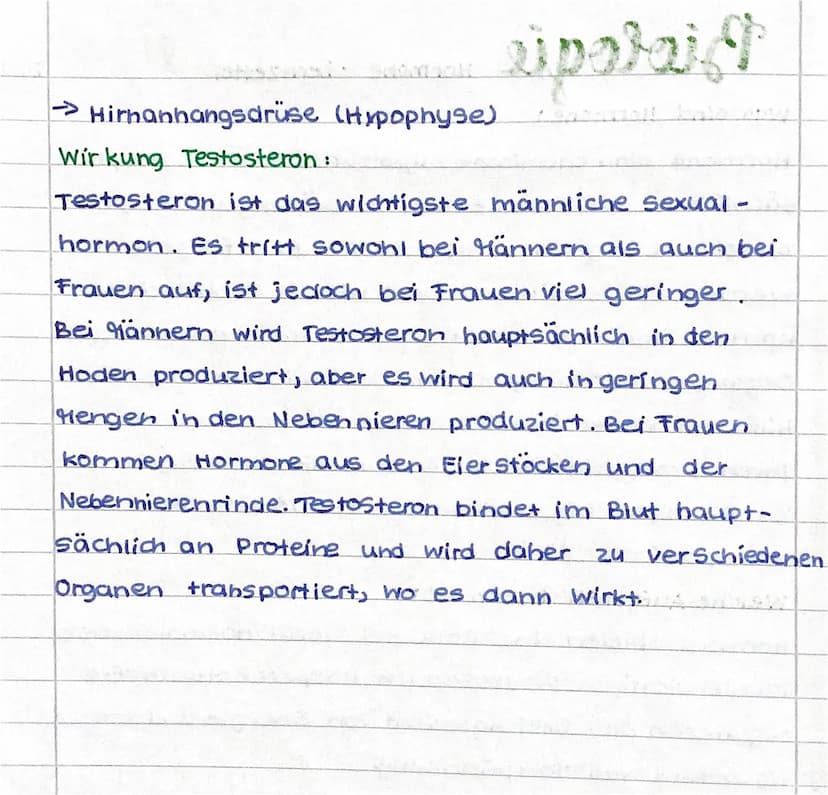 Biologie
→ Hirnanhangsdrüse (Hypophyse)
Wirkung Testosteron:
Testosteron ist das wichtigste männliche Sexual-
hormon. Es tritt sowohl bei Männern als auch bei
Frauen auf, ist jedoch bei Frauen viel geringer.
Bei Männern wird Testosteron hauptsächlich in den
Hoden produziert, aber es wird auch in geringen
Mengen in den Nebennieren produziert. Bei Frauen
kommen Hormone aus den Eierstöcken und der
Nebennierenrinde. Testosteron bindet im Blut haupt-
sächlich an Proteine und wird daher zu verschiedenen
Organen transportiert, wo es dann wirkt.